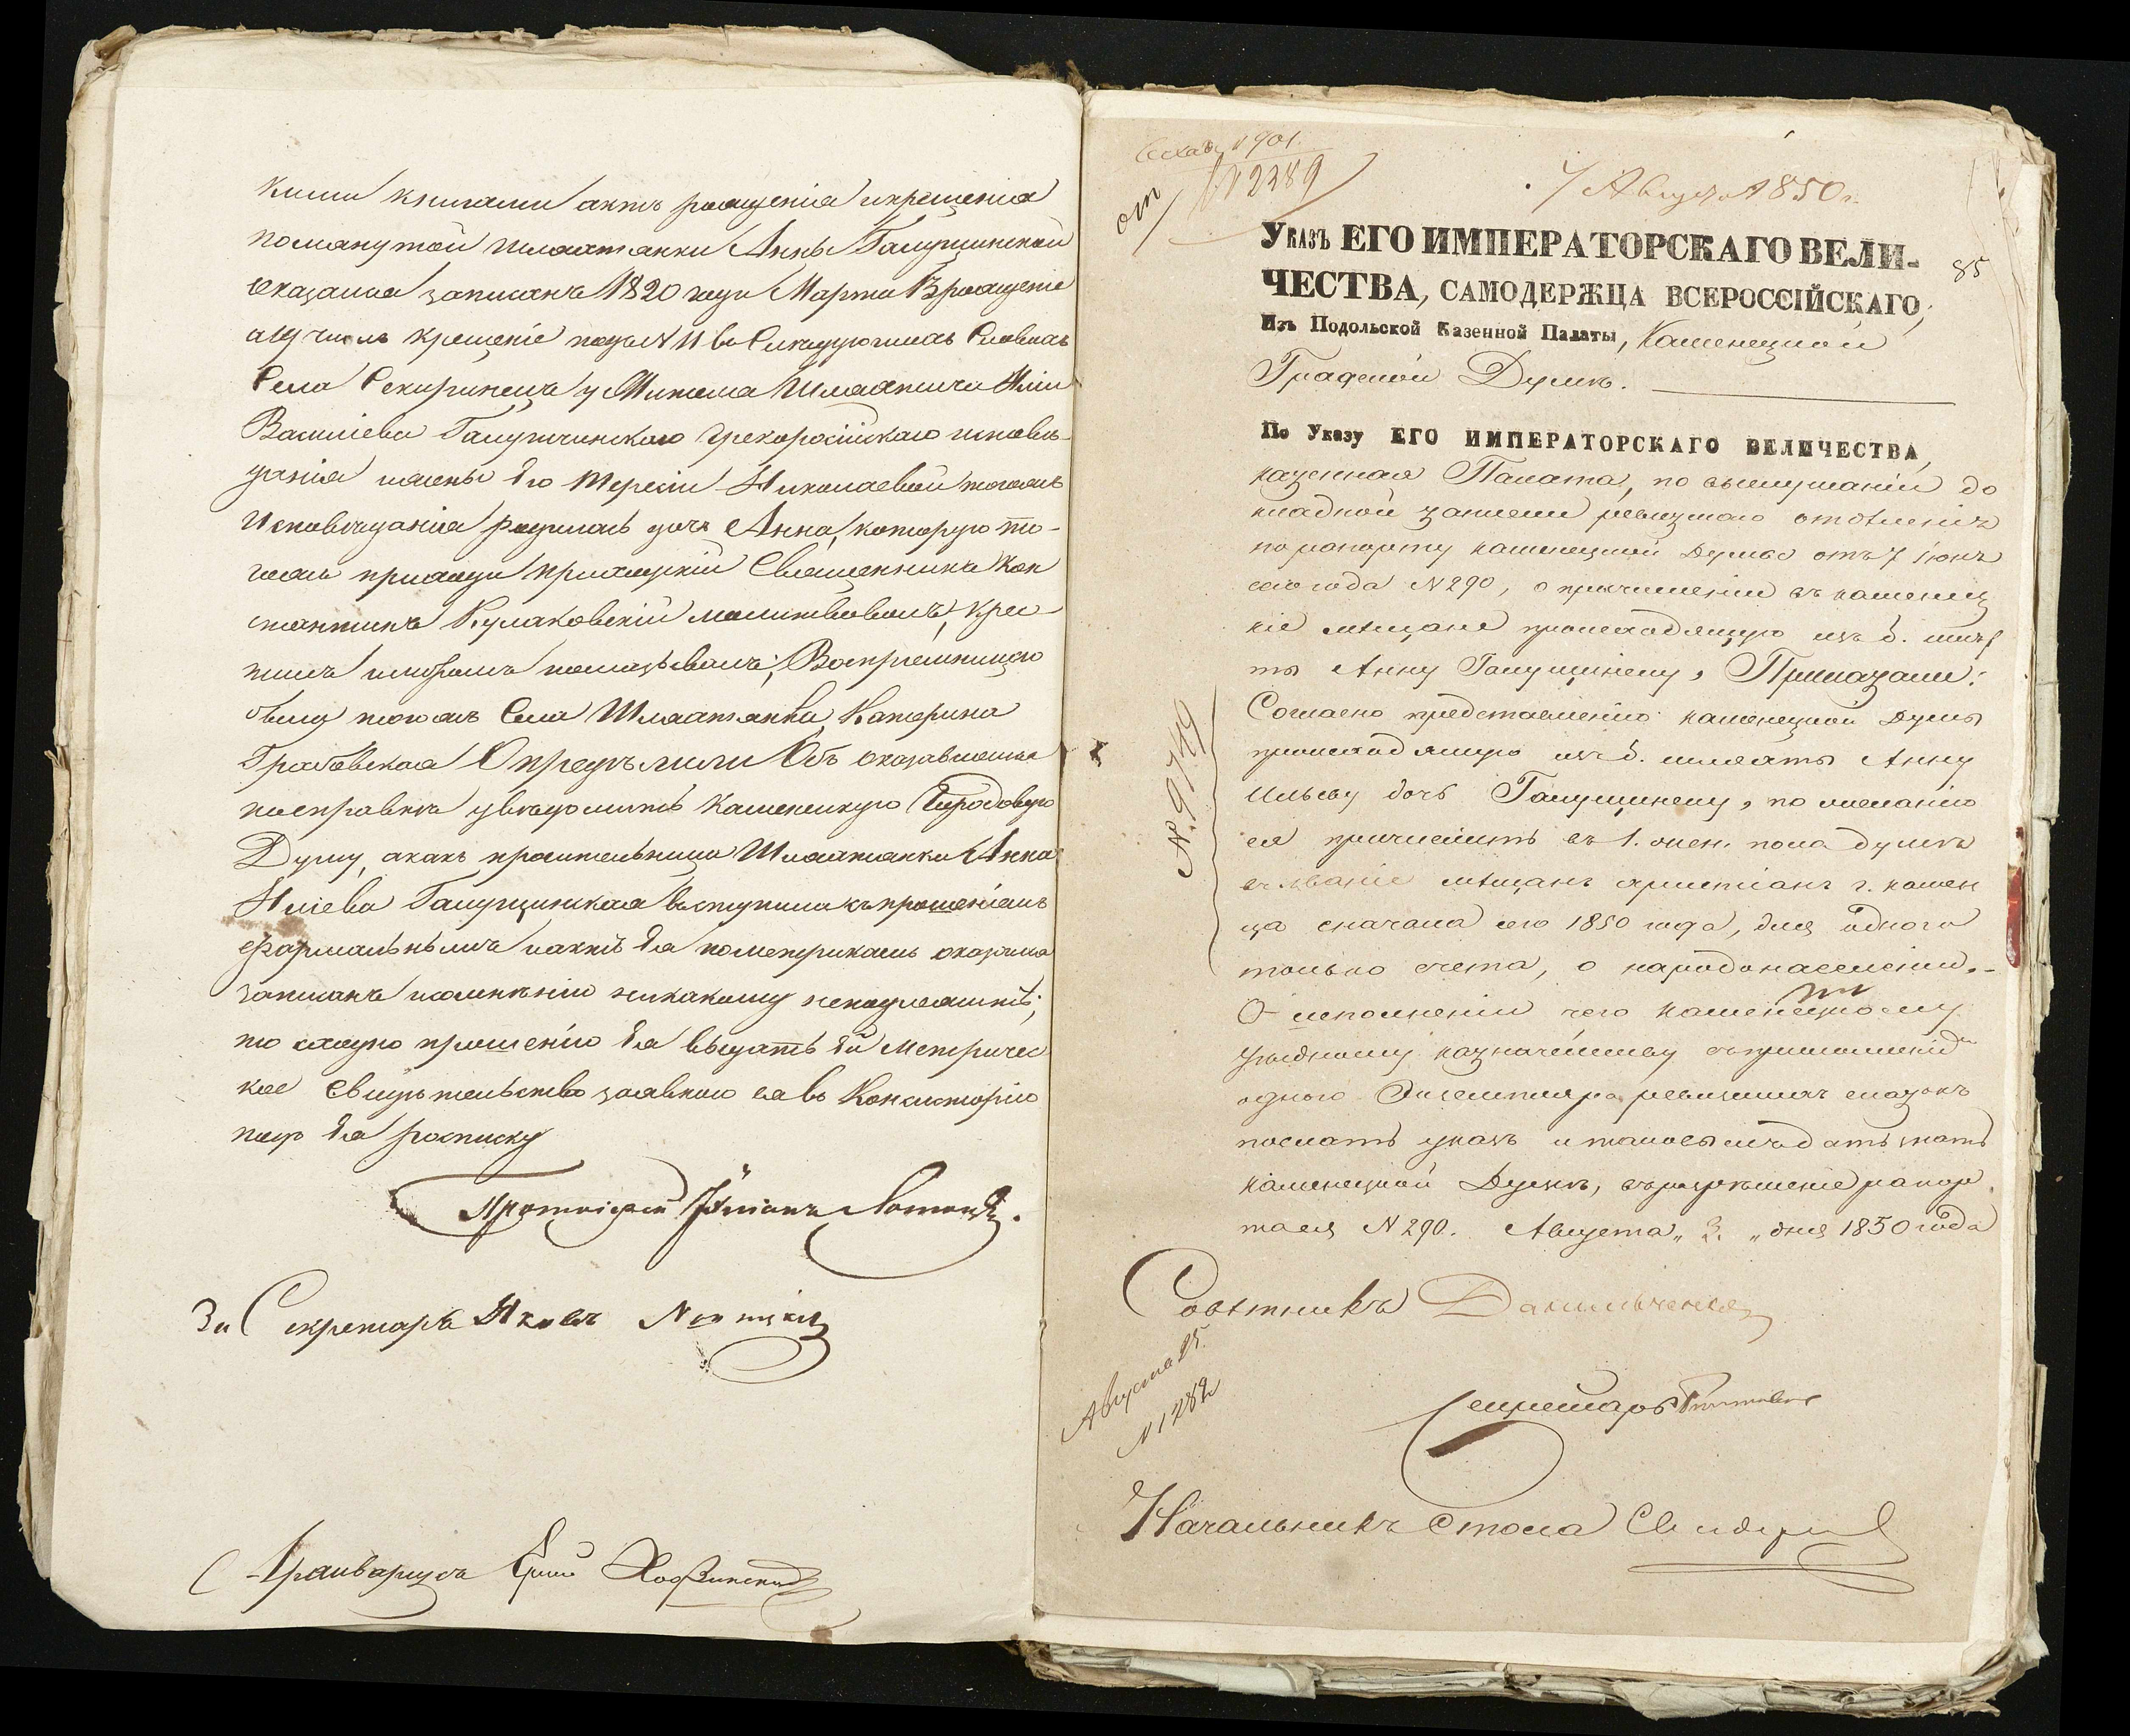 кими книгами актъ рожденія и крещенія
помянутой шляхтянки Анны Галущинской
оказался записанъ 1820 года Марта В рожденіе
а числъ крещеніе подъ N 11 въ Слѣдующихъ Словахъ
Села Секиринецъ у Жителя Шляхтича Иліи
Василіева Галущинского Грекоросійского исповѣ-
данія и жены Его Терезіи Николаевой тогожъ
Исповѣданія родилась дочь Анна, которую то-
гожъ прихода приходскій Священникъ Кон
стантинъ Кулаковскій молитвовалъ, крес-
тилъ и мѵромъ помазывалъ; Воспріемницею
были тогожъ Села Шляхтянка Катерина
Грабовская Опредѣлили Объ оказавшемся
по справкѣ увѣдомить Каменецкую Городовую
Думу, а какъ просительница Шляхтянка Анна
Иліева Галущинская вступила съ прошеніемъ
формальнымъ и актъ Ея по метрикамъ оказался
записанъ и сомнѣнію никакому не подлежитъ;
то согласно прошенію Ея выдать Ей Метричес
кое Свидѣтельство за явкою ея въ Консисторію
подъ Ея росписку
Протоіерей
За Секретаря Яковъ
1901.
N 2389
от
7 Августа 1850 г.
85
Указъ ЕГО ИМПЕРАТОРСКАГО ВЕЛИ-
ЧЕСТВА, САМОДЕРЖЦА ВСЕРОССІЙСКАГО,
Изъ Подольской Казенной Палаты, Каменецкой
Градской Думѣ.
По Указу ЕГО ИМПЕРАТОРСКАГО ВЕЛИЧЕСТВА,
казенная Палата, по выслушаніи до
кладной записки ревизского отдѣленія
по рапорту каменецкой Думы отъ 7 іюня
сего года N 290, о причисленіи въ каменец
кіе мѣщане происходящую изъ б. шлях
ты Анну Галущинску, Приказали:
Согласно представленію каменецкой Думы
происходящую изъ б. шляхты Анну
Ильеву дочь Галущинску, по желанію
ея причислить въ 1. женс. пола душѣ
въ званіе мѣщанъ христіанъ г. камен
ца сначала сего 1850 года, для одного
только счета, о народонаселеніи.-
О исполненіи чего каменецкому
уѣздному казначейству съ приложеніемъ
одного Экземпляра ревизскихъ сказокъ
послать указъ и таковый же дать знать
каменецкой Думѣ, въ разрѣшеніе рапор
та ея N 290. Августа „ 2. „ дня 1850 года
N. 9749
Совѣтникъ Данильченко
Августа 25.
N 1282
Секретарь
Начальникъ Стола